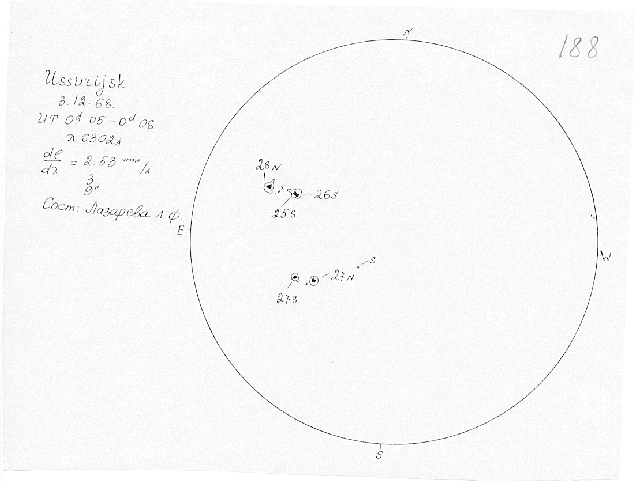 188
Ussurijsk
3.12.68.
UT 0d 05 - 0d 06
λ 6302Å
dl/dλ = 2.53 mm/Å
3
9"
Сост: Лазарева Л Ф.
N
E
W
S
28N
26S
25S
27N
S
27S